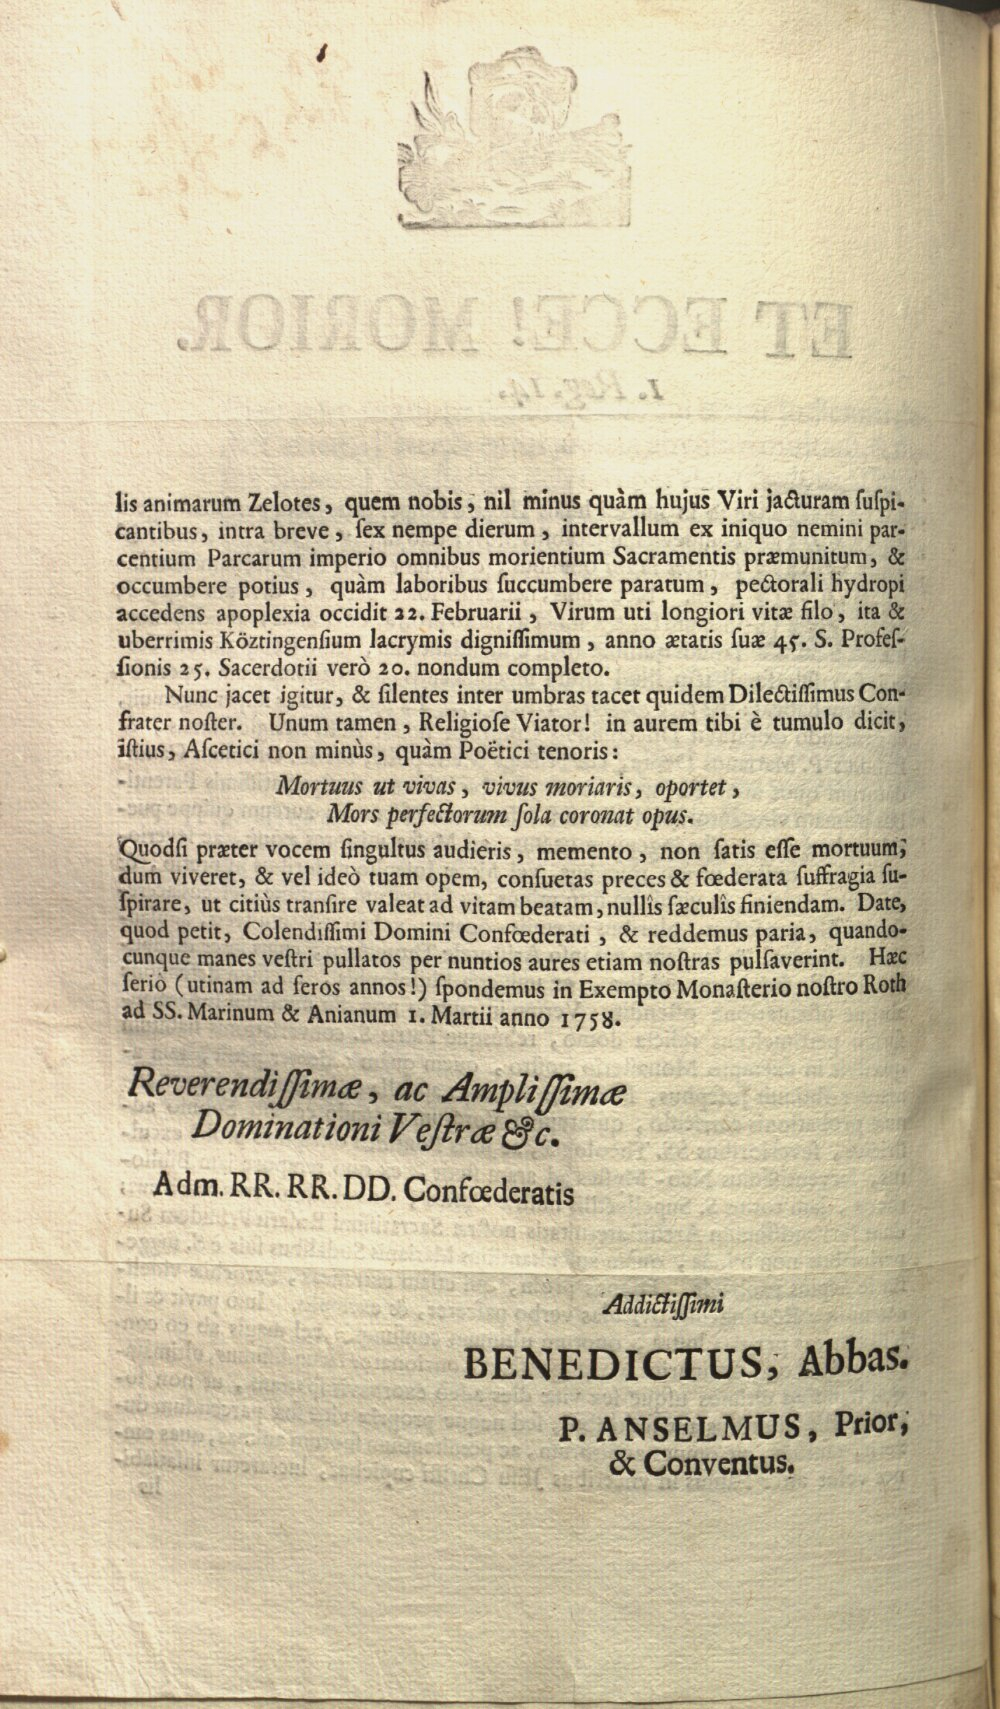 lis animarum Zelotes, quem nobis, nil minus quàm hujus Viri jacturam ſuſpi-
cantibus, intra breve, ſex nempe dierum, intervallum ex iniquo nemini par-
centium Parcarum imperio omnibus morientium Sacramentis præmunitum, &
occumbere potius, quàm laboribus ſuccumbere paratum, pectorali hydropi
accedens apoplexia occidit 22. Februarii, Virum uti longiori vitæ filo, ita &
uberrimis Köztingenſium lacrymis digniſſimum, anno ætatis ſuæ 45. S. Profeſ-
ſionis 25. Sacerdotii verò 20. nondum completo.
Nunc jacet igitur, & ſilentes inter umbras tacet quidem Dilectiſſimus Con-
frater noſter. Unum tamen, Religioſe Viator! in aurem tibi è tumulo dicit,
iſtius, Aſcetici non minùs, quàm Poëtici tenoris:
Mortuus ut vivas, vivus moriaris, oportet,
Mors perfectorum ſola coronat opus.
Quodſi præter vocem ſingultus audieris, memento, non ſatis eſſe mortuum,
dum viveret, & vel ideò tuam opem, conſuetas preces & fœderata ſuffragia ſu-
ſpirare, ut citiùs tranſire valeat ad vitam beatam, nullîs ſæculîs finiendam. Date,
quod petit, Colendiſſimi Domini Confœderati, & reddemus paria, quando-
cunque manes veſtri pullatos per nuntios aures etiam noſtras pulſaverint. Hæc
ſeriò (utinam ad ſeros annos!) ſpondemus in Exempto Monaſterio noſtro Roth
ad SS. Marinum & Anianum 1. Martii anno 1758.
Reverendiſſimæ, ac Ampliſſimæ
Dominationi Veſtræ &c.
Adm. RR. RR. DD. Confœderatis
Addictiſſimi
BENEDICTUS, Abbas.
P. ANSELMUS, Prior,
& Conventus.
ET ECCE! MORIOR.
1. Reg. 14.